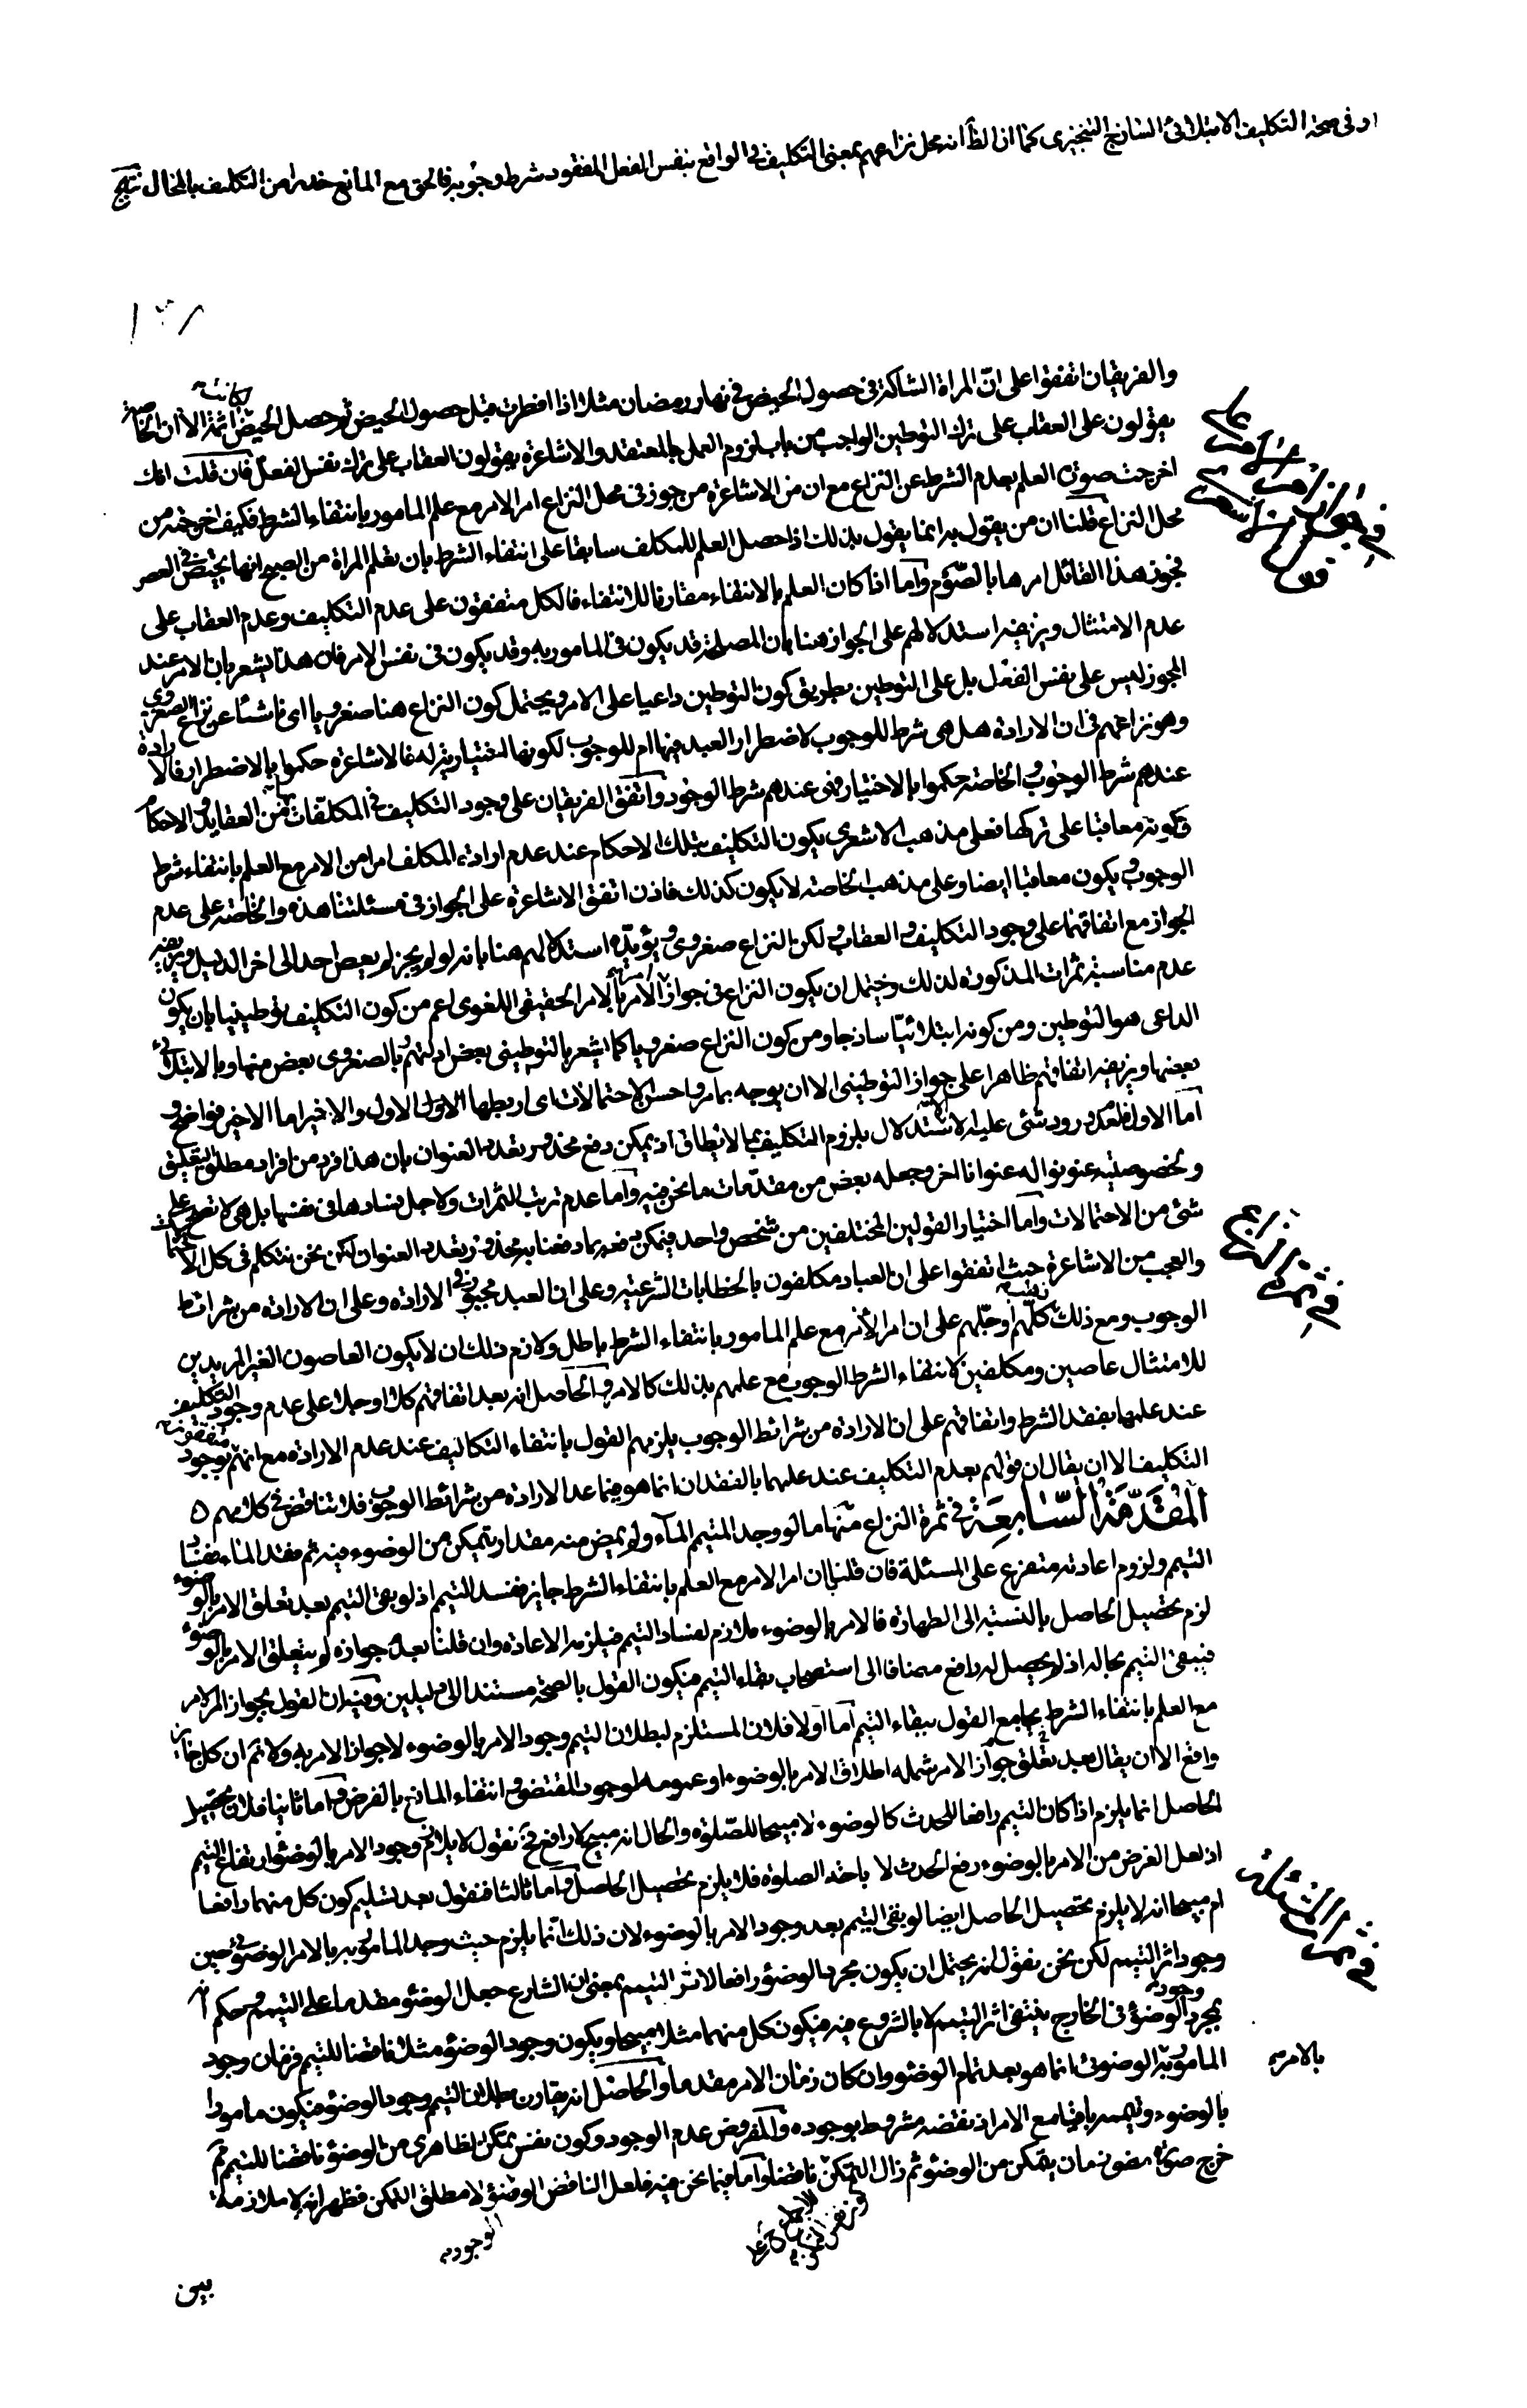 او فى صحة التكليف الابتلائى الساذج التنجيزى كما ان الظ انه محل نزاعهم بمعنى التكليف فى الواقع بنفس الفعل المفقود شرط وجوبه فالحق مع المانع حذرا من التكليف بالمحال
١٣٨
والفريقان اتفقوا على انّ المراة الشاكة فى حصول الحيض فى نهار رمضان مثلا اذا افطرت قبل حصول الحيض ثم حصل الحيض اثمة الا ان الخاصة
يقولون على العقاب على ترك التوطين الواجب من باب لزوم العمل بالمعتقد والاشاعرة يقولون العقاب على ترك نفس الفعل فان قلت انك
اخرجت صورة العلم بعدم الشرط عن النزاع مع ان من الاشاعرة من جوز فى محل النزاع امر الامر مع علم المامور بانتفاء الشرط فكيف اخرجته من
محل النزاع قلنا ان من يقول به انما يقول بذلك اذا حصل العلم للمكلف سابقا على انتفاء الشرط بان تعلم المراة من الصبح انها تحيض فى العصر
فجوز هذا القائل امرها بالصّوم واما اذا كان العلم بالانتفاء مقارنا للانتفاء فالكل متفقون على عدم التكليف وعدم العقاب على
عدم الامتثال ويزيفه استدلالهم على الجواز هنا بان المصلحة قد يكون فى المامور به وقد يكون فى نفس الامر فان هذا يشعر بان الامر عند
المجوز ليس على نفس الفعل بل على التوطين بطريق كون التوطين داعيا على الامر ويحتمل كون النزاع هنا صغرويا اى ناشئا عن نزاع الصغروى
وهو نزاعهم فى ان الارادة هل هى شرط للوجوب لاضطرار العبد فيها ام للوجود لكونها اختيارية له فالاشاعرة حكموا بالاضطرار فالارادة
عندهم شرط الوجوب والخاصة حكموا بالاختيار فهى عندهم شرط الوجود واتفق الفريقان على وجود التكليف فى المكلفات من العقايد والاحكام
وكونه معاقبا على تركها فعلى مذهب الاشعرى يكون التكليف بتلك الاحكام عند عدم ارادة المكلف امرا من الامر مع العلم بانتفاء شرط
الوجوب ويكون معاقبا ايضا وعلى مذهب الخاصة لا يكون كذلك فاذن اتفق الاشاعرة على الجواز فى مسئلتنا هذه والخاصة على عدم
الجواز مع اتفاقهما على وجود التكليف والعقاب ولكن النزاع صغروى ويؤيّده استدلالهم هنا بانه لو لم يجز لم يعص احد الى اخر الدليل ويزيفه
عدم مناسبة ثمرات المذكورة لذلك ويحتمل ان يكون النزاع فى جواز الامر بالامر الحقيقى اللغوى اعم من كون التكليف توطينيا بان يكون
الداعى هو التوطين ومن كونه ابتلائيّا ساذجا ومن كون النزاع صغرويا كما يشعر بالتوطينى بعض ادلتهم وبالصغروى بعض منها وبالابتلائى
بعضها ويزيفه اتفاقهم ظاهرا على جواز التوطينى الا ان يوجه بما مر واحسن الاحتمالات اى اربطها الاول الاول والاخير اما الاخير فواضح و
اما الاول فلعدم ورود شئ عليه الا استدلال بلزوم التكليف بما لا يطاق اذ يمكن دفع محذور تعدد العنوان بان هذا فرد من افراد مطلق التعليق
ولخصوصيته عنونوا له عنوانا اخر وجعله بعض من مقدّمات ما نحن فيه واما عدم ترتب الثمرات ولاجل فسادها فى نفسها بل هى لا تصح على
شئ من الاحتمالات واما اختيار القولين المختلفين من شخص واحد فيمكن دفعه بما دفعنا به محذور تعدد العنوان لكن نحن نتكلم فى كل الاحتمالات
والعجب من الاشاعرة حيث اتفقوا على ان العباد مكلفون بالخطابات الشرعية وعلى ان العبد مجبور فى الارادة وعلى ان الارادة من شرائط
الوجوب ومع ذلك كلّهم او جلّهم على ان امر الأمر مع علم المامور بانتفاء الشرط باطل ولازم ذلك ان لا يكون العاصون الغير المريدين
للامتثال عاصين ومكلفين لانتفاء الشرط الوجوب مع علمهم بذلك كالامر والحاصل انه بعد اتفاقهم كلا او جلا على عدم وجود التكليف
عند علمها بفقد الشرط واتفاقهم على ان الارادة من شرائط الوجوب يلزمهم القول بانتفاء التكاليف عند عدم الارادة مع انهم متفقون بوجود
التكليف الا ان يقال ان قولهم بعدم التكليف عند علمها بالفقدان انما هو فيما عدا الارادة من شرائط الوجوب فلا تناقض فى كلامهم
المقدّمة السّابعة فى ثمرة النزاع منها ما لو وجد المتيم المآء ولم يمض منه مقدار يتمكن من الوضوء فيه ثم فقد الماء ففساد
التيم ولزوم اعادته متفرع على المسئلة فان قلنا بان امر الامر مع العلم بانتفاء الشرط جايز ففسد التيم اذ لو بقى التيم بعد تعلق الامر بالوضوء
لزم تحصيل الحاصل بالنسبة الى الطهارة فالامر بالوضوء ملازم لفساد التيم فيلزمه الاعادة وان قلنا بعدم جوازه لم يتعلق الامر بالوضوء
فيبقى التيم بحاله اذ لم يحصل له رافع مضافا الى استصحاب بقاء التيم فيكون القول بالصحة مستندا الى دليلين وفيه ان القول بجواز امر الامر
مع العلم بانتفاء الشرط يجامع القول ببقاء التيم اما اولا فلان المستلزم لبطلان التيم وجود الامر بالوضوء لا جواز الامر به ولا تم ان كل جايز
واقع الا ان يقال بعد تعلق جواز الامر شمله اطلاق الامر بالوضوء او عمومه لوجود المقتضى وانتفاء المانع بالفرض واما ثانيا فلان تحصيل
الحاصل انما يلزم اذا كان التيم رافعا للحدث كالوضوء لا مبيحا للصّلوة والحال انه مبيح لا رافع فح نقول لا يلزم وجود الامر بالوضوء ارتفاع التيم
اذ لعل الغرض من الامر بالوضوء رفع الحدث لا باحة الصلوة فلا يلزم تحصيل الحاصل واما ثالثا فنقول بعد تسليم كون كل منهما رافعا
ام مبيحا انه لا يلزم تحصيل الحاصل ايضا لو بقى التيم بعد وجود الامر بالوضوء لان ذلك انما يلزم حيث وجد المامور به بالامر الوضوئى حين
وجود اثر التيم لكن نحن نقول انه يحتمل ان يكون مجرد الوضوء رافعا لاثر التيم بمعنى ان الشارع جعل الوضوء مقدما على التيم وحكم
بمجرد وجود الوضوء فى الخارج ينتفى اثر التيم لا بالشروع فيه فيكون كل منهما مثلا مبيحا ويكون وجود الوضوء مثلا ناقضا للتيم فزمان وجود
المامور به الوضوئى انما هو بعد تمام الوضوء وان كان زمان الامر مقدما والحاصل انه يقارن بطلان التيم وجود الوضوء فيكون مامورا
بالوضوء وتيممه باقيا مع الامر اذ نقضه مشروط بوجوده والمفروض عدم الوجود وكون نفس تمكن الظاهرى من الوضوء ناقضا للتيم ثم
خرج صورة مضى زمان يتمكن من الوضوء ثم زال التمكن ناقضا واما فيما نحن فيه فلعل الناقض الوضوء لا مطلق التمكن فظهر انه لا ملازمة
بالامر
الوجود
بين
فى ثمرة النزاع